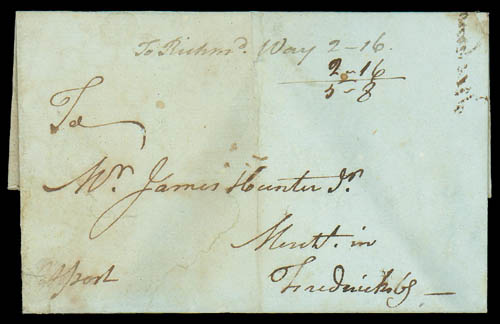 To Richmd. Way 2-16.
2-16
5-8
To
Mr. James Hunter Jr.
Mercht. in
p post Fredricksbg